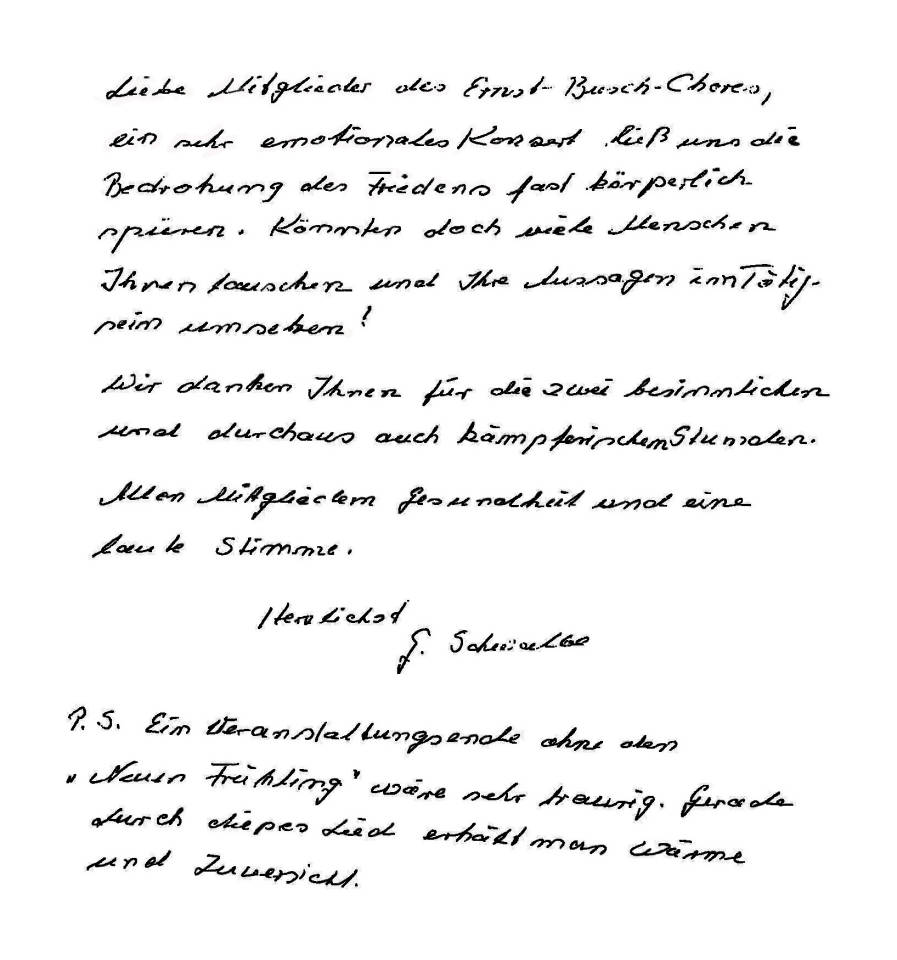 Liebe Mitglieder des Ernst-Busch-Chores,
ein sehr emotionales Konzert ließ uns die
Bedrohung des Friedens fast körperlich
spüren. Könnten doch viele Menschen
Ihnen lauschen und Ihre Aussagen im Tätig-
sein umsetzen!
Wir danken Ihnen für die zwei besinnlichen
und durchaus auch kämpferischen Stunden.
Allen Mitgliedern Gesundheit und eine
laute Stimme.
Herzlichst
G. Schwalbe
P.S. Ein Veranstaltungsende ohne den
„Neuen Frühling" wäre sehr traurig. Gerade
durch dieses Lied erhält man Wärme
und Zuversicht.